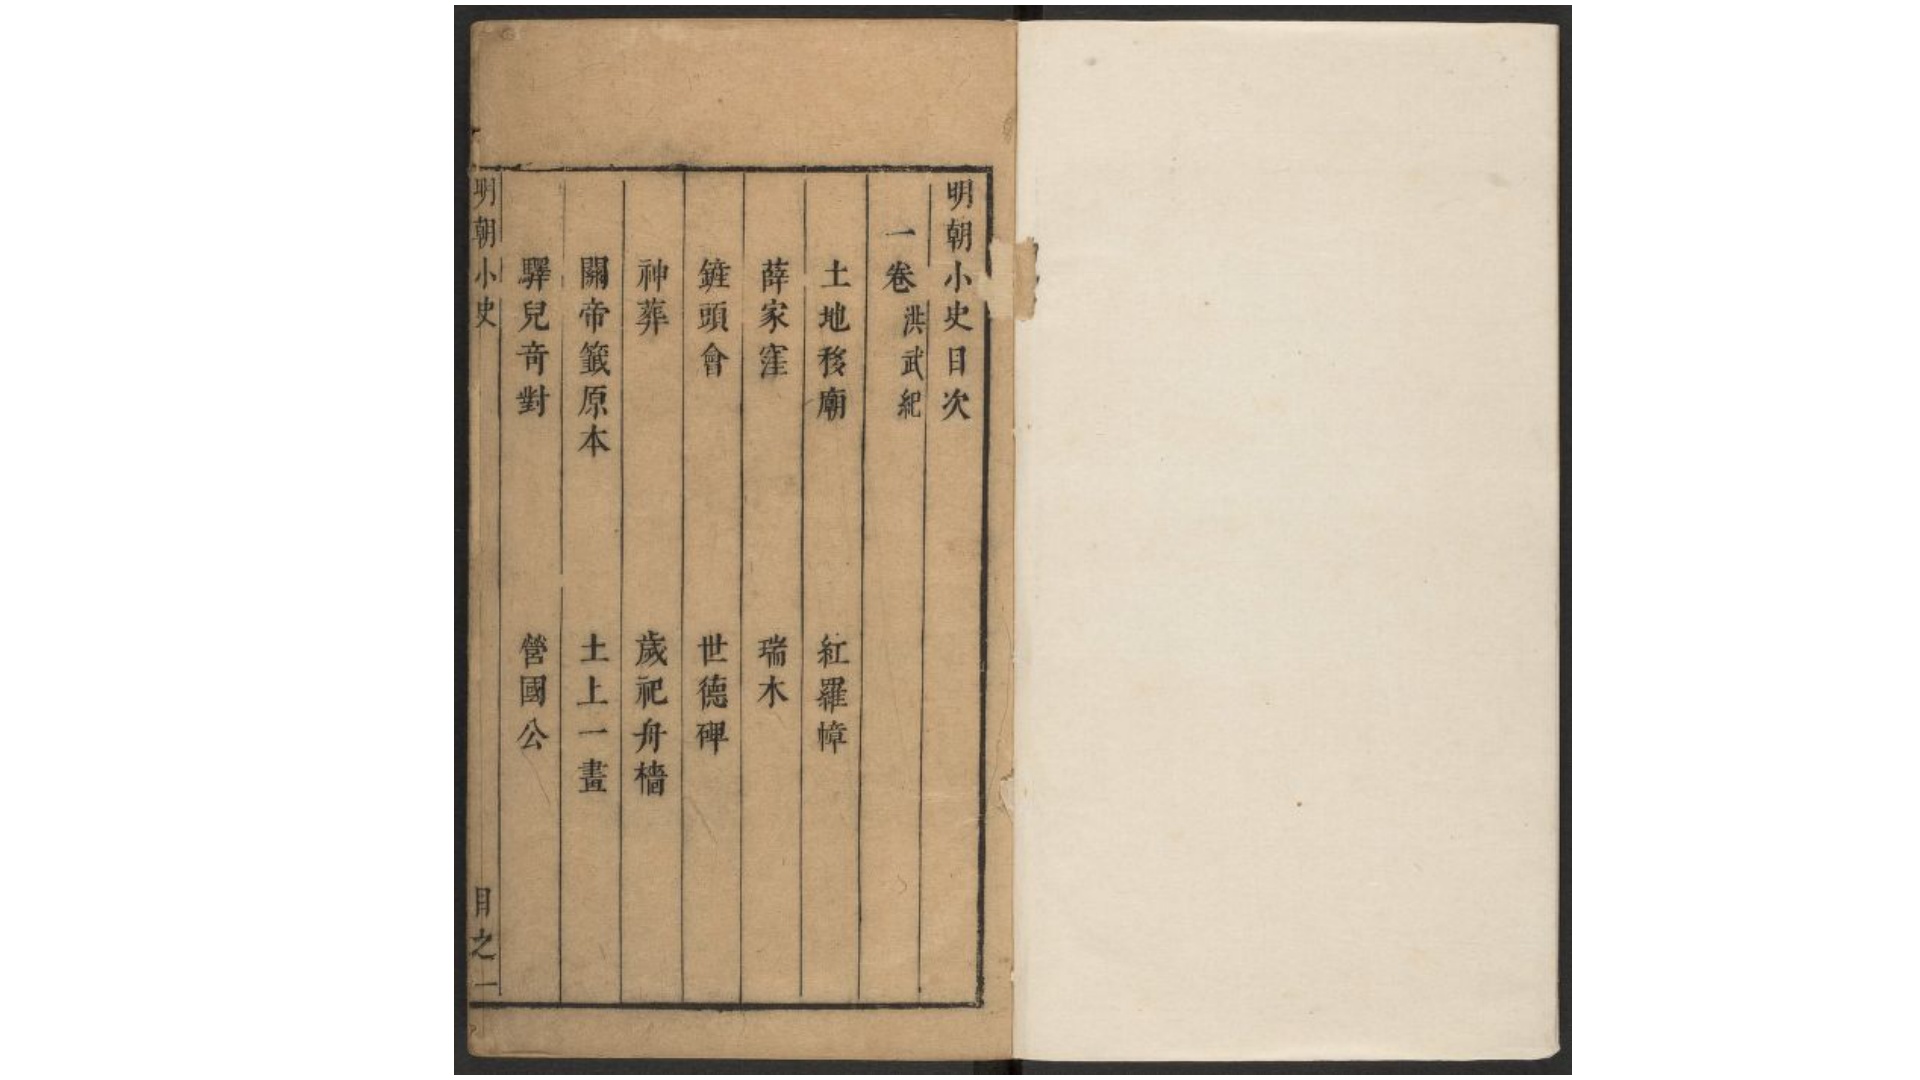 明朝小史目次
一卷 洪武紀
土地移廟 紅羅幛
薛家窪 瑞木
鏙頭會 世德碑
神葬 歲祀舟檣
關帝籤原本 土上一畫
驛兒奇對 營國公
明朝小史 目之一